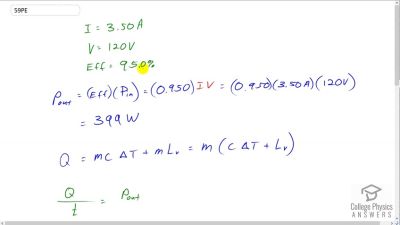 59PE
I = 3.50 A
V = 120V
Eff = 95.0%
Pout = (Eff)(Pin) = (0.950) I V = (0.950)(3.50A)(120V)
= 399 W
Q = mc ΔT + mLv = m(c ΔT + Lv)
Q/t = Pout
College Physics
ANSWERS